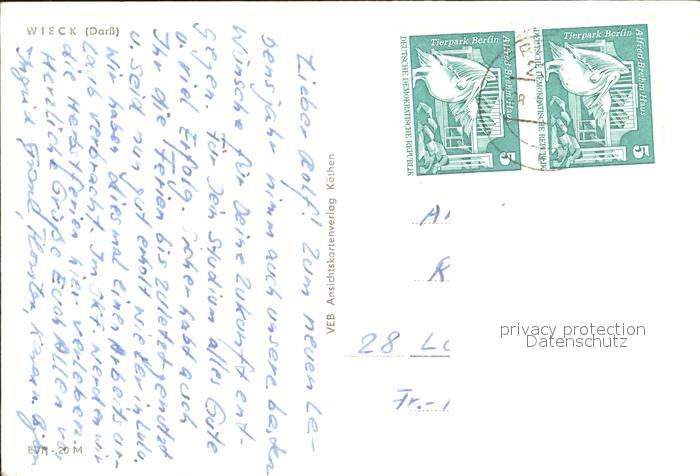 WIECK (Darß)
Lieber Rolf! Zum neuen Le-
bensjahr nimm auch unsere besten
Wünsche für Deine Zukunft ent-
gegen. Für Dein Studium alles Gute
u. viel Erfolg. Sicher habt auch
Ihr die Ferien bis zuletzt genutzt
u. seid nun gut erholt wieder in
Wir haben diesmal einen Arbeitsur-
laub verbracht. Im Okt. werden wir
die Herbstferien hier verleben.
Herzliche Grüße Euch Allen von
Ingrid, Karen
EVP -,20 M
VEB Ansichtskartenverlag Köthen
Tierpark Berlin
Alfred-Brehm-Haus
DEUTSCHE DEMOKRATISCHE REPUBLIK
5
Tierpark Berlin
Alfred-Brehm-Haus
DEUTSCHE DEMOKRATISCHE REPUBLIK
5
28
Fr.-
privacy protection
Datenschutz